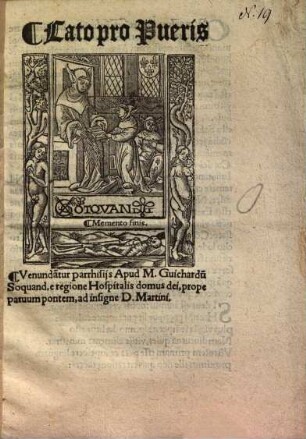 N. 19
¶ Cato pro Pueris
SOQVAND
¶ Memento finis.
¶ Venundãtur parrhisijs Apud M. Guichardũ
Soquand, e regione Hospitalis domus dei, prope
paruum pontem, ad insigne D. Martini.